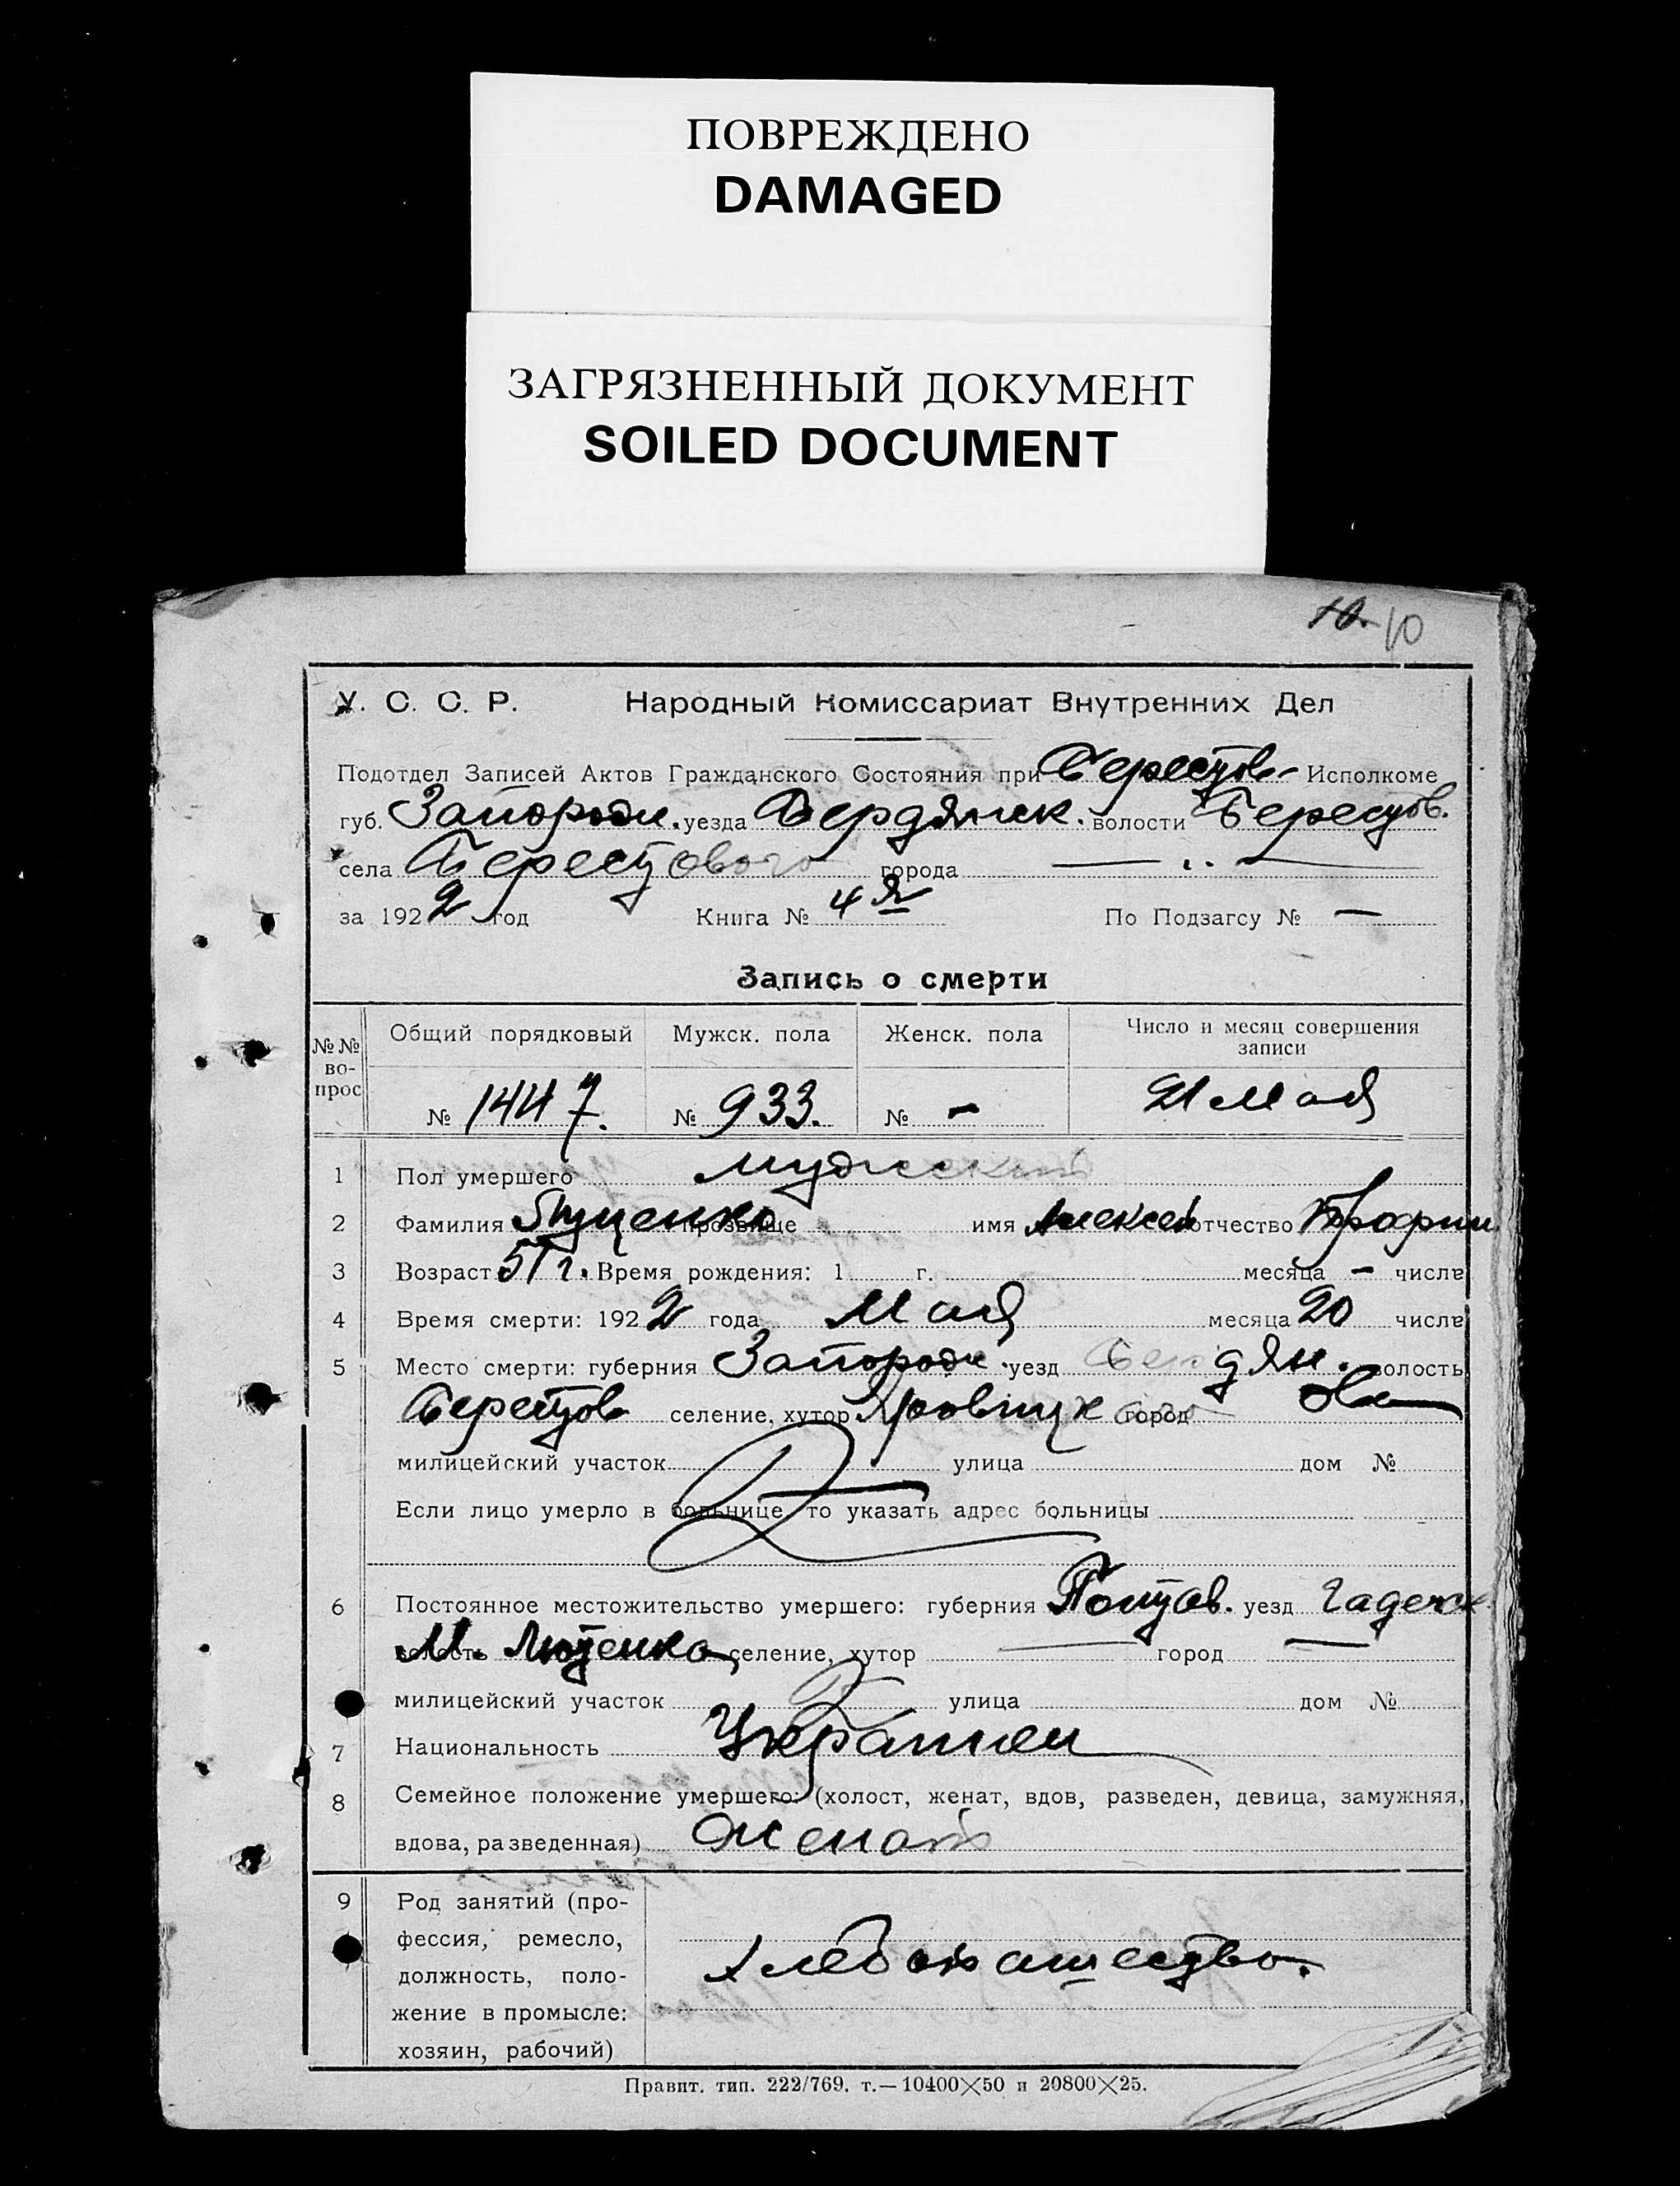 ПОВРЕЖДЕНО
DAMAGED
ЗАГРЯЗНЕННЫЙ ДОКУМЕНТ
SOILED DOCUMENT
10. 10
У. С. С. Р. Народный Комиссариат Внутренних Дел
Подотдел Записей Актов Гражданского Состояния при Берестов- Исполкоме
губ. Запорож. уезда Бердянск. волости Берестов.
села Берестового города —
за 1922 год Книга № 4 я По Подзагсу № —
Запись о смерти
№№ во-прос Общий порядковый Мужск. пола Женск. пола Число и месяц совершения записи
№ 1447. № 933. № — 21 мая
1 Пол умершего мужеский
2 Фамилия прозвище имя Алексей отчество Трофим
3 Возраст 51 г. Время рождения: 1 г. месяца — числа
4 Время смерти: 1922 года Мая месяца 20 числа
5 Место смерти: губерния Запорож. уезд Бердян. волость
Берестов селение, хутор город
милицейский участок улица дом №
Если лицо умерло в больнице, то указать адрес больницы
6 Постоянное местожительство умершего: губерния Полтав. уезд Гадячск
волость М. Лютенка селение, хутор — город —
милицейский участок улица дом №
7 Национальность
8 Семейное положение умершего: (холост, женат, вдов, разведен, девица, замужняя,
вдова, разведенная) Женат
9 Род занятий (про-
фессия, ремесло,
должность, поло- хлебопашество.
жение в промысле:
хозяин, рабочий)
Правит. тип. 222/769. т.—10400×50 и 20800×25.